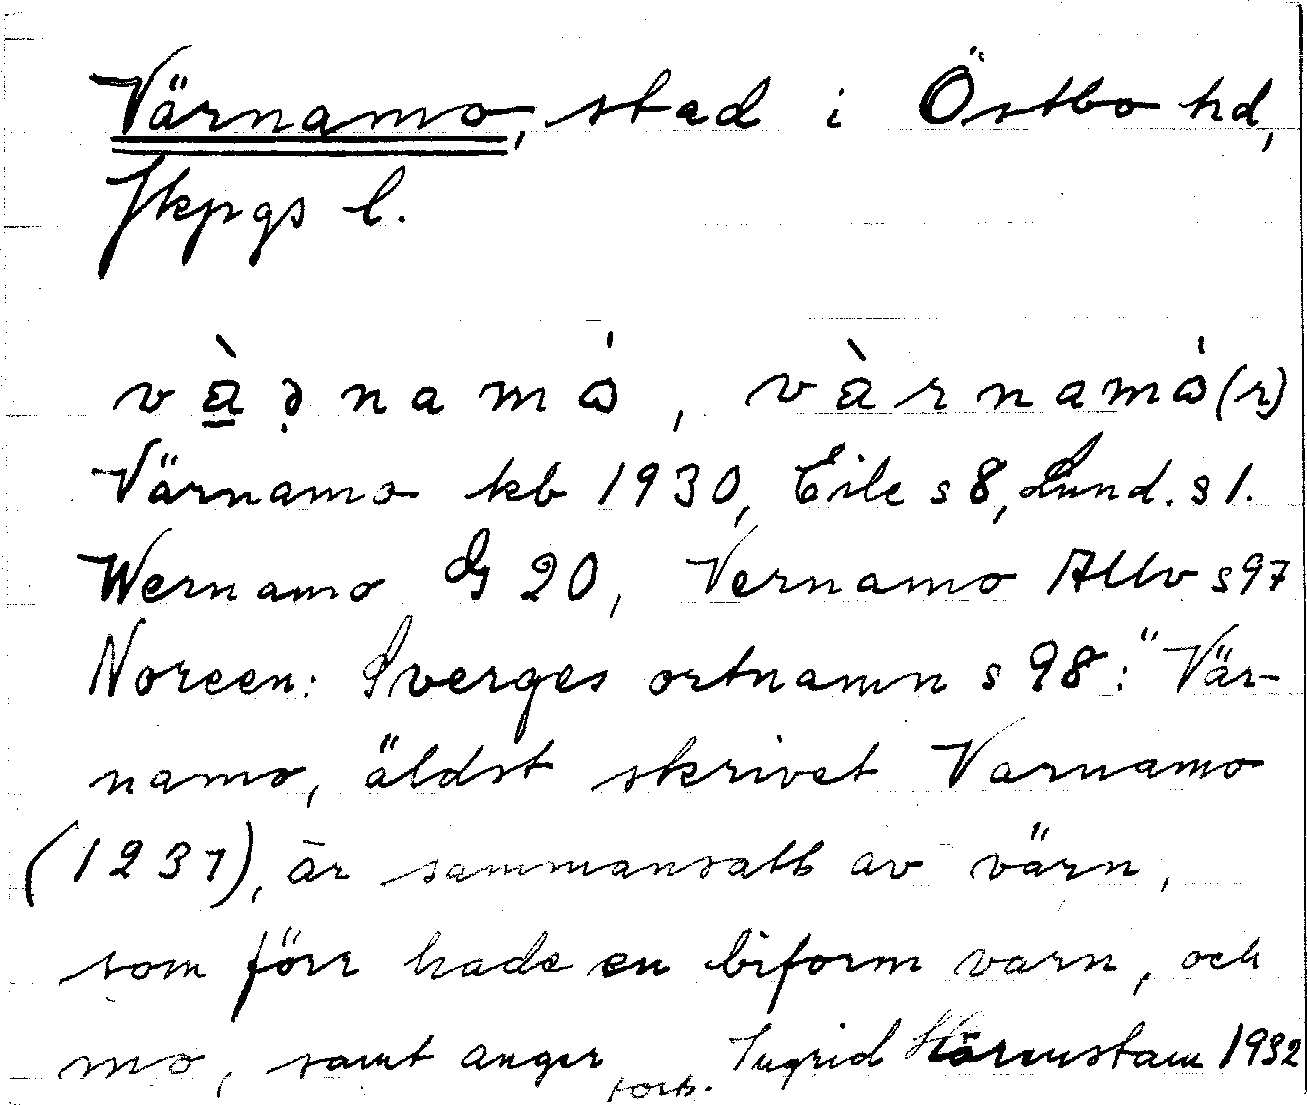 Värnamo, stad i Östbo hd,
Jkpgs l.
và̠ə̣namω̇, vàrnamω̇(r)
Värnamo kb 1930, Eile s 8, Lund. s 1.
Wernamo G 20, Vernamo Allv s 97
Noreen: Sverges ortnamn s 98: "Vär-
namo, äldst skrivet Varnamo
(1237), är sammansatt av värn,
som förr hade en biform varn, och
mo, samt anger Ingrid 1932
forts.